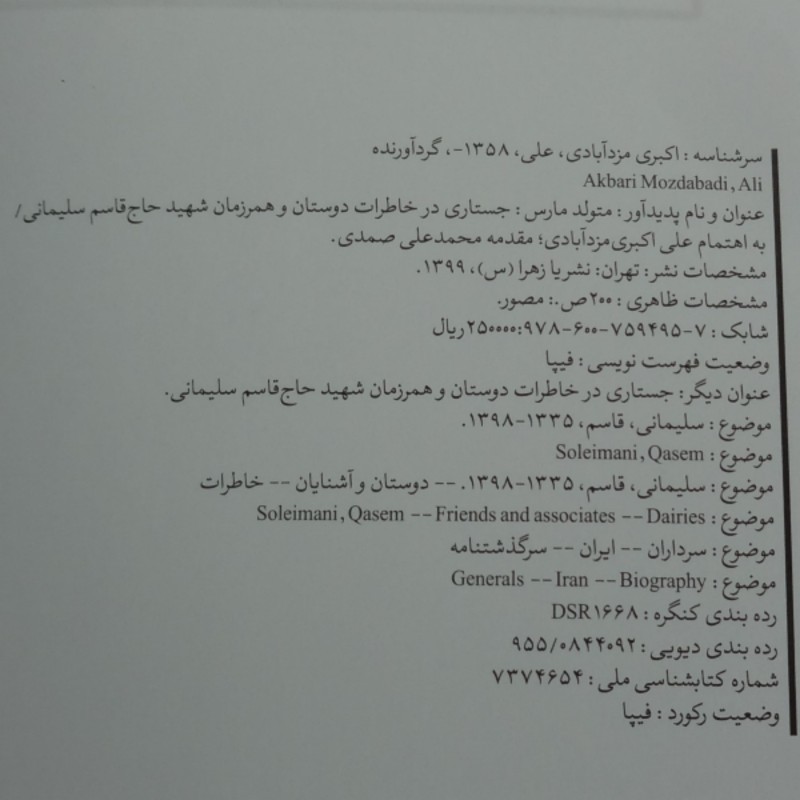 سرشناسه : اکبری مزدآبادی، علی، ۱۳۵۸-، گردآورنده
Akbari Mozdabadi, Ali
عنوان و نام پدیدآور : متولد مارس : جستاری در خاطرات دوستان و همرزمان شهید حاج‌قاسم سلیمانی/
به اهتمام علی اکبری‌مزدآبادی؛ مقدمه محمدعلی صمدی.
مشخصات نشر : تهران: نشر یا زهرا (س)، ۱۳۹۹.
مشخصات ظاهری : ۲۰۰ص.: مصور.
شابک : ۷-۷۵۹۴۹۵-۶۰۰-۹۷۸: ۲۵۰۰۰۰ ریال
وضعیت فهرست نویسی : فیپا
عنوان دیگر : جستاری در خاطرات دوستان و همرزمان شهید حاج‌قاسم سلیمانی.
موضوع : سلیمانی، قاسم، ۱۳۳۵-۱۳۹۸.
موضوع : Soleimani, Qasem
موضوع : سلیمانی، قاسم، ۱۳۳۵-۱۳۹۸. -- دوستان و آشنایان -- خاطرات
موضوع : Soleimani, Qasem -- Friends and associates -- Dairies
موضوع : سرداران -- ایران -- سرگذشتنامه
موضوع : Generals -- Iran -- Biography
رده بندی کنگره : DSR۱۶۶۸
رده بندی دیویی : ۹۵۵/۰۸۴۴۰۹۲
شماره کتابشناسی ملی : ۷۳۷۴۶۵۴
وضعیت رکورد : فیپا